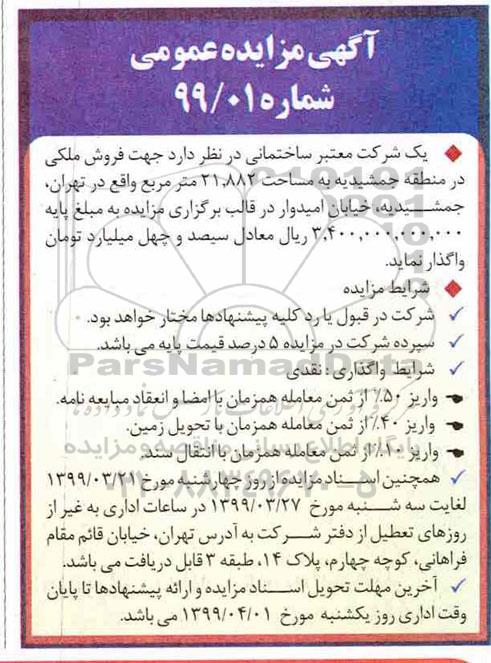 آگهی مزایده عمومی
شماره ۹۹/۰۱
یک شرکت معتبر ساختمانی در نظر دارد جهت فروش ملکی
در منطقه جمشیدیه به مساحت ۲۱,۸۸۲ متر مربع واقع در تهران،
جمشیدیه، خیابان امیدوار در قالب برگزاری مزایده به مبلغ پایه
۳,۴۰۰,۰۰۰,۰۰۰,۰۰۰ ریال معادل سیصد و چهل میلیارد تومان
واگذار نماید.
شرایط مزایده
شرکت در قبول یا رد کلیه پیشنهادها مختار خواهد بود.
سپرده شرکت در مزایده ۵ درصد قیمت پایه می باشد.
ParsNamadData
شرایط واگذاری: نقدی
واریز ۵۰٪ از ثمن معامله همزمان با امضا و انعقاد مبایعه نامه.
واریز ۴۰٪ از ثمن معامله همزمان با تحویل زمین.
واریز ۱۰٪ از ثمن معامله همزمان با انتقال سند.
همچنین اسناد مزایده از روز چهارشنبه مورخ ۱۳۹۹/۰۳/۲۱
لغایت سه شنبه مورخ ۱۳۹۹/۰۳/۲۷ در ساعات اداری به غیر از
روزهای تعطیل از دفتر شرکت به آدرس تهران، خیابان قائم مقام
فراهانی، کوچه چهارم، پلاک ۱۴، طبقه ۳ قابل دریافت می باشد.
آخرین مهلت تحویل اسناد مزایده و ارائه پیشنهادها تا پایان
وقت اداری روز یکشنبه مورخ ۱۳۹۹/۰۴/۰۱ می باشد.